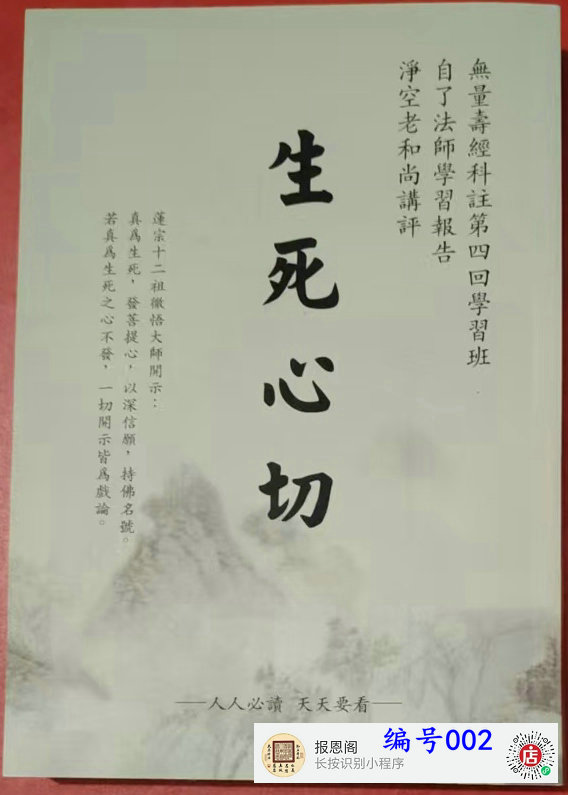 無量壽經科註第四回學習班
自了法師學習報告
淨空老和尚講評
生死心切
蓮宗十二祖徹悟大師開示：
真為生死，發菩提心，以深信願，持佛名號。
若真為生死之心不發，一切開示皆為戲論。
人人必讀 天天要看
报恩阁
长按识别小程序
编号002
店